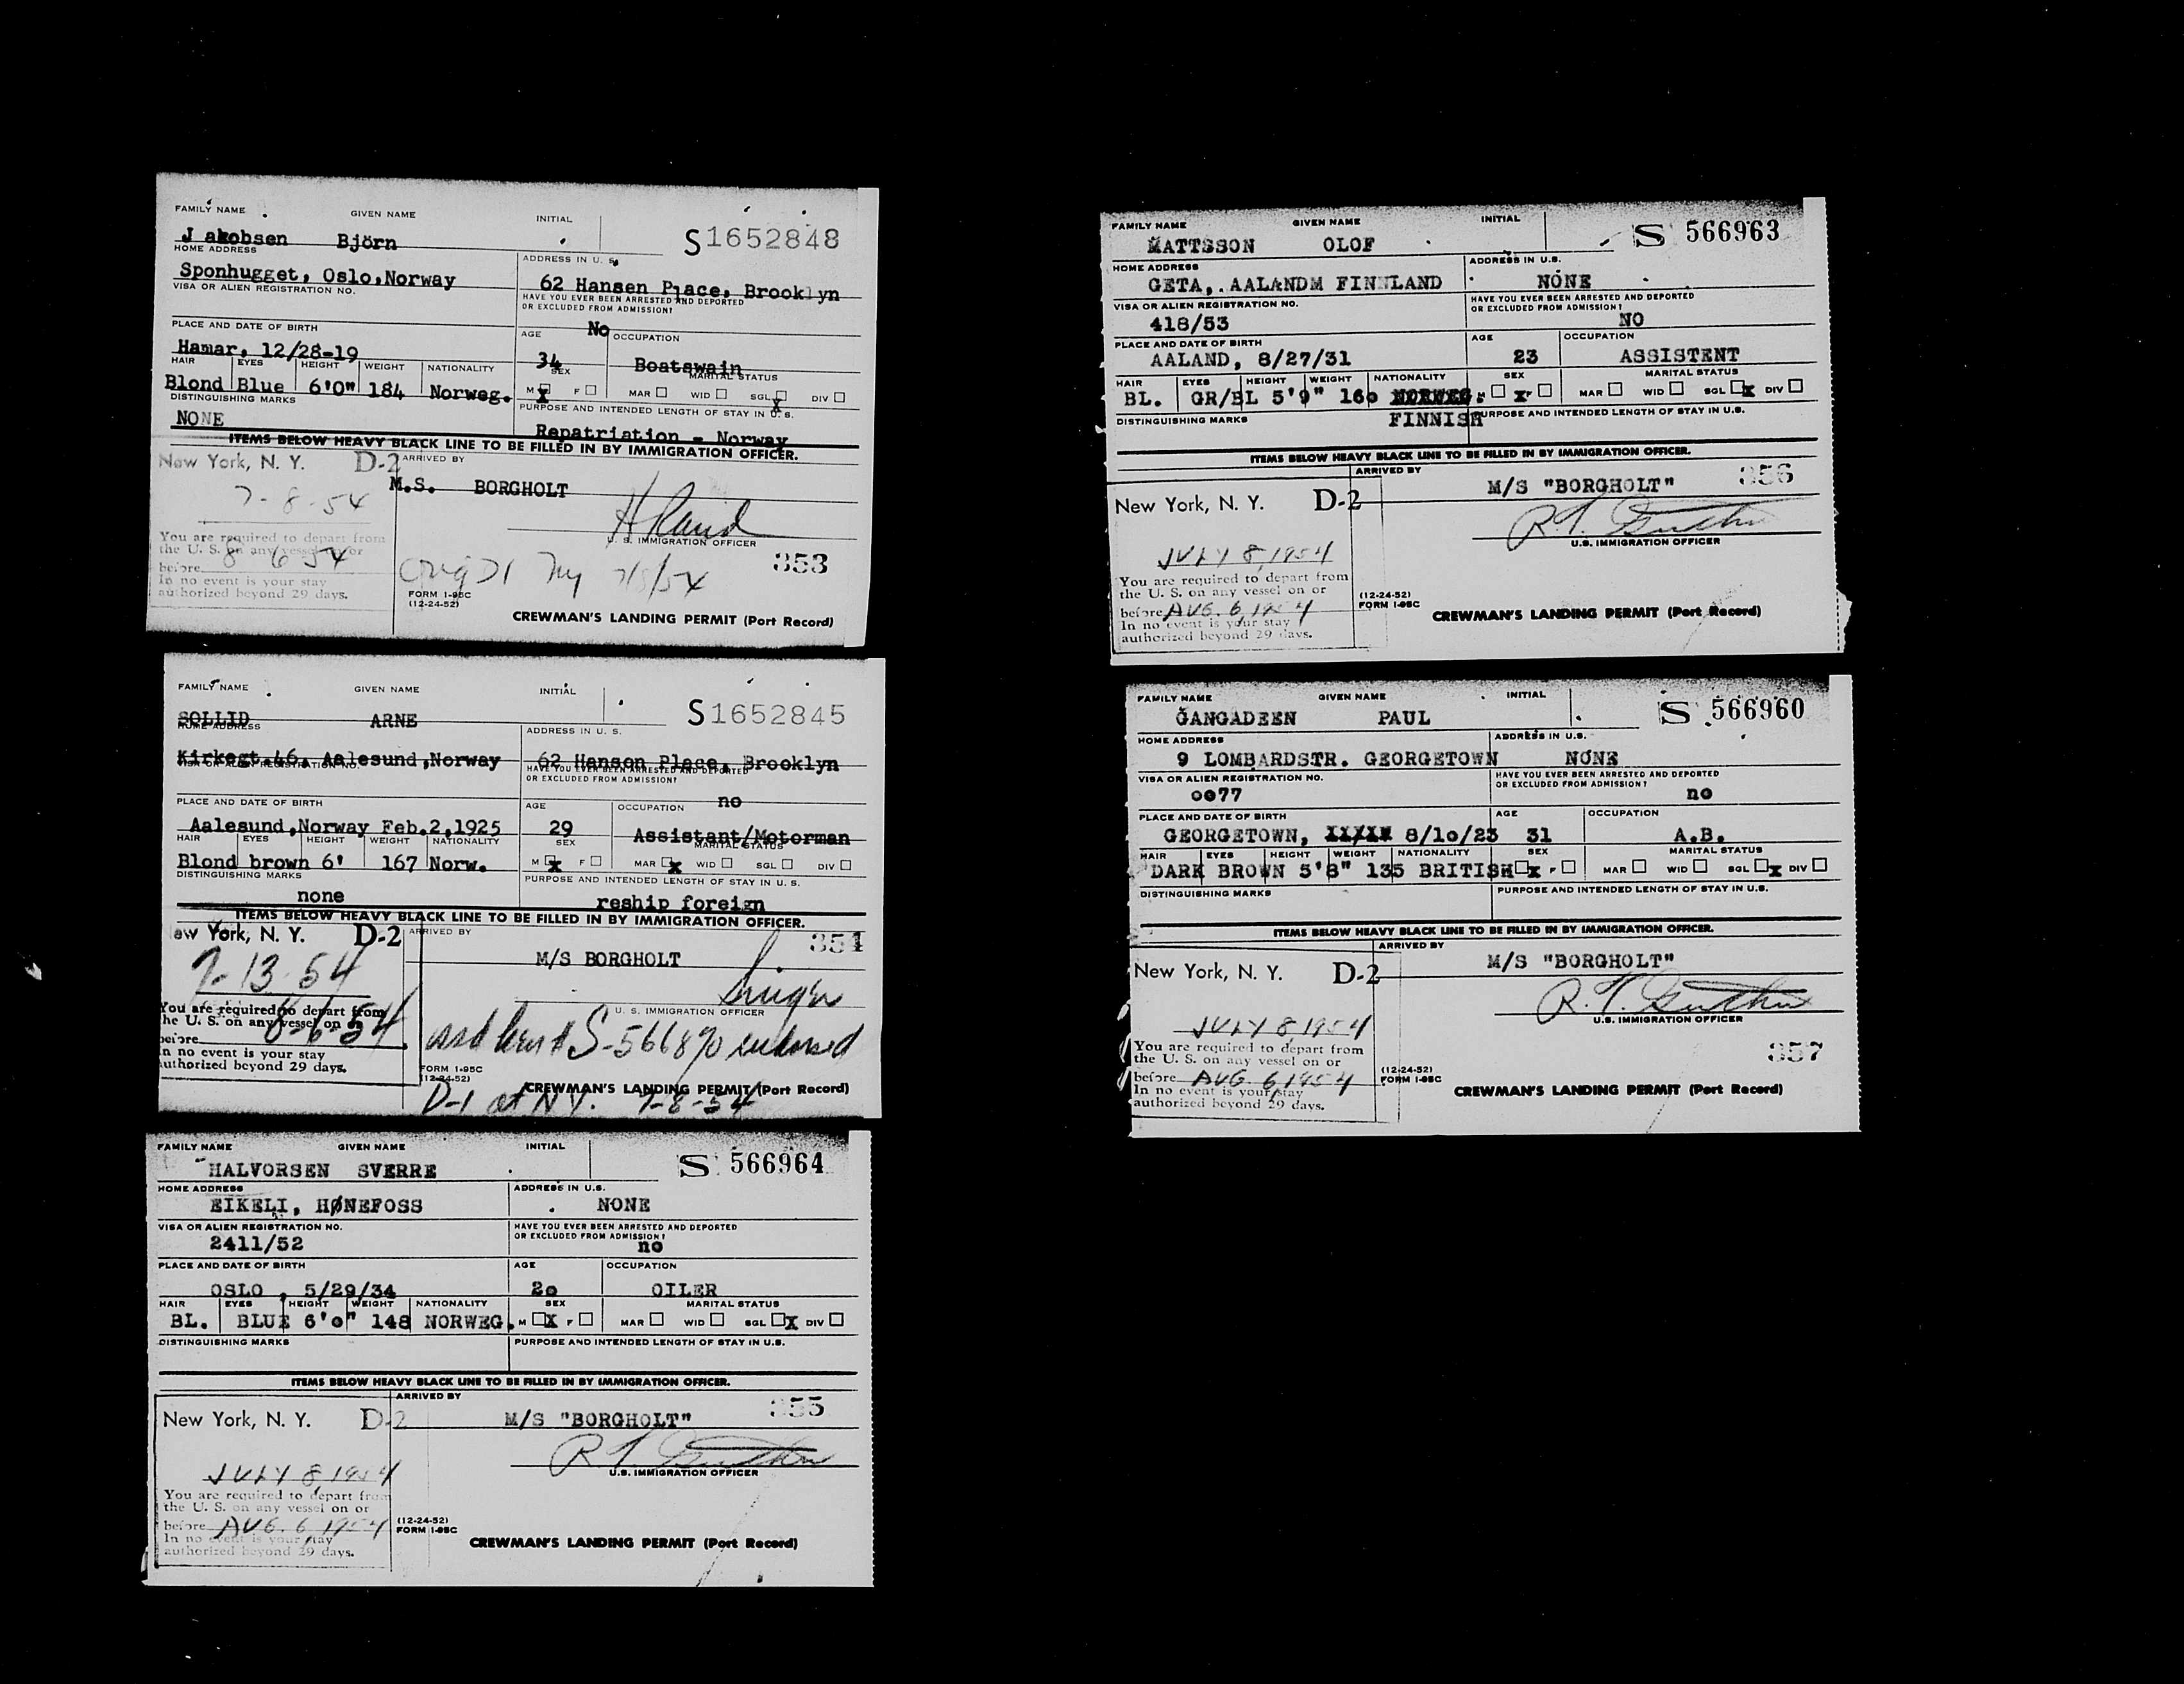 FAMILY NAME GIVEN NAME INITIAL
S1652848
J akobsen Björn
HOME ADDRESS ADDRESS IN U. S.
Sponhugget, Oslo,Norway 62 Hansen Place, Brooklyn
VISA OR ALIEN REGISTRATION NO. HAVE YOU EVER BEEN ARRESTED AND DEPORTED
OR EXCLUDED FROM ADMISSION?
No
PLACE AND DATE OF BIRTH AGE OCCUPATION
Hamar, 12/28-19 34 Boatswain
HAIR EYES HEIGHT WEIGHT NATIONALITY SEX MARITAL STATUS
Blond Blue 6'0" 184 Norweg. M X F MAR WID SGL X DIV
DISTINGUISHING MARKS PURPOSE AND INTENDED LENGTH OF STAY IN U. S.
NONE Repatriation - Norway
ITEMS BELOW HEAVY BLACK LINE TO BE FILLED IN BY IMMIGRATION OFFICER.
New York, N. Y. D-2 ARRIVED BY
M.S. BORGHOLT
7-8-54
U. S. IMMIGRATION OFFICER
You are required to depart from
the U. S. on any vessel on or
before 8 6 54
In no event is your stay
authorized beyond 29 days.
353
FORM 1-95C
(12-24-52)
CREWMAN'S LANDING PERMIT (Port Record)
FAMILY NAME GIVEN NAME INITIAL
S1652845
SOLLID ARNE
HOME ADDRESS ADDRESS IN U. S.
Kirkegt.46, Aalesund,Norway 62 Hanson Place, Brooklyn
VISA OR ALIEN REGISTRATION NO. HAVE YOU EVER BEEN ARRESTED AND DEPORTED
OR EXCLUDED FROM ADMISSION?
no
PLACE AND DATE OF BIRTH AGE OCCUPATION
Aalesund,Norway Feb.2,1925 29 Assistant/Motorman
HAIR EYES HEIGHT WEIGHT NATIONALITY SEX MARITAL STATUS
Blond brown 6' 167 Norw. M X F MAR X WID SGL DIV
DISTINGUISHING MARKS PURPOSE AND INTENDED LENGTH OF STAY IN U. S.
none reship foreign
ITEMS BELOW HEAVY BLACK LINE TO BE FILLED IN BY IMMIGRATION OFFICER.
ew York, N. Y. D-2 ARRIVED BY 354
M/S BORGHOLT
7-13-54
U. S. IMMIGRATION OFFICER
You are required to depart from
the U. S. on any vessel on or
before 8-6-54
In no event is your stay
authorized beyond 29 days.
S-566870 endorsed
FORM 1-95C
(12-24-52)
CREWMAN'S LANDING PERMIT (Port Record)
D-1 at N.Y. 7-8-54
FAMILY NAME GIVEN NAME INITIAL
S 566964
HALVORSEN SVERRE
HOME ADDRESS ADDRESS IN U.S.
EIKELI, HØNEFOSS NONE
VISA OR ALIEN REGISTRATION NO. HAVE YOU EVER BEEN ARRESTED AND DEPORTED
OR EXCLUDED FROM ADMISSION?
2411/52 no
PLACE AND DATE OF BIRTH AGE OCCUPATION
OSLO , 5/29/34 2o OILER
HAIR EYES HEIGHT WEIGHT NATIONALITY SEX MARITAL STATUS
BL. BLUE 6'o" 148 NORWEG. M X F MAR WID SGL X DIV
DISTINGUISHING MARKS PURPOSE AND INTENDED LENGTH OF STAY IN U.S.
ITEMS BELOW HEAVY BLACK LINE TO BE FILLED IN BY IMMIGRATION OFFICER.
ARRIVED BY
New York, N. Y. D-2 M/S "BORGHOLT" 355
JULY 8 1954
U.S. IMMIGRATION OFFICER
You are required to depart from
the U. S. on any vessel on or
before AUG. 6, 1954
In no event is your stay
authorized beyond 29 days.
(12-24-52)
FORM 1-95C
CREWMAN'S LANDING PERMIT (Port Record)
FAMILY NAME GIVEN NAME INITIAL
S 566963
MATTSSON OLOF
HOME ADDRESS ADDRESS IN U.S.
GETA,.AALANDM FINNLAND NONE
VISA OR ALIEN REGISTRATION NO. HAVE YOU EVER BEEN ARRESTED AND DEPORTED
OR EXCLUDED FROM ADMISSION?
418/53 NO
PLACE AND DATE OF BIRTH AGE OCCUPATION
AALAND, 8/27/31 23 ASSISTENT
HAIR EYES HEIGHT WEIGHT NATIONALITY SEX MARITAL STATUS
BL. GR/BL 5'9" 16o NORWEG. M X F MAR WID SGL X DIV
FINNISH
DISTINGUISHING MARKS PURPOSE AND INTENDED LENGTH OF STAY IN U.S.
ITEMS BELOW HEAVY BLACK LINE TO BE FILLED IN BY IMMIGRATION OFFICER.
ARRIVED BY
M/S "BORGHOLT" 356
New York, N. Y. D-2
U.S. IMMIGRATION OFFICER
JULY 8, 1954
You are required to depart from
the U. S. on any vessel on or
before AUG. 6 1954
In no event is your stay
authorized beyond 29 days.
(12-24-52)
FORM 1-95C
CREWMAN'S LANDING PERMIT (Port Record)
FAMILY NAME GIVEN NAME INITIAL
S 566960
GANGADEEN PAUL
HOME ADDRESS ADDRESS IN U.S.
9 LOMBARDSTR. GEORGETOWN NONE
VISA OR ALIEN REGISTRATION NO. HAVE YOU EVER BEEN ARRESTED AND DEPORTED
OR EXCLUDED FROM ADMISSION?
oo77 no
PLACE AND DATE OF BIRTH AGE OCCUPATION
GEORGETOWN, 8/1o/23 31 A.B.
HAIR EYES HEIGHT WEIGHT NATIONALITY SEX MARITAL STATUS
DARK BROWN 5'8" 135 BRITISH X F MAR WID SGL X DIV
DISTINGUISHING MARKS PURPOSE AND INTENDED LENGTH OF STAY IN U.S.
ITEMS BELOW HEAVY BLACK LINE TO BE FILLED IN BY IMMIGRATION OFFICER.
ARRIVED BY
New York, N. Y. D-2 M/S "BORGHOLT"
U.S. IMMIGRATION OFFICER
JULY 8 1954
You are required to depart from
the U. S. on any vessel on or
before AUG. 6, 1954
In no event is your stay
authorized beyond 29 days.
357
(12-24-52)
FORM 1-95C
CREWMAN'S LANDING PERMIT (Port Record)